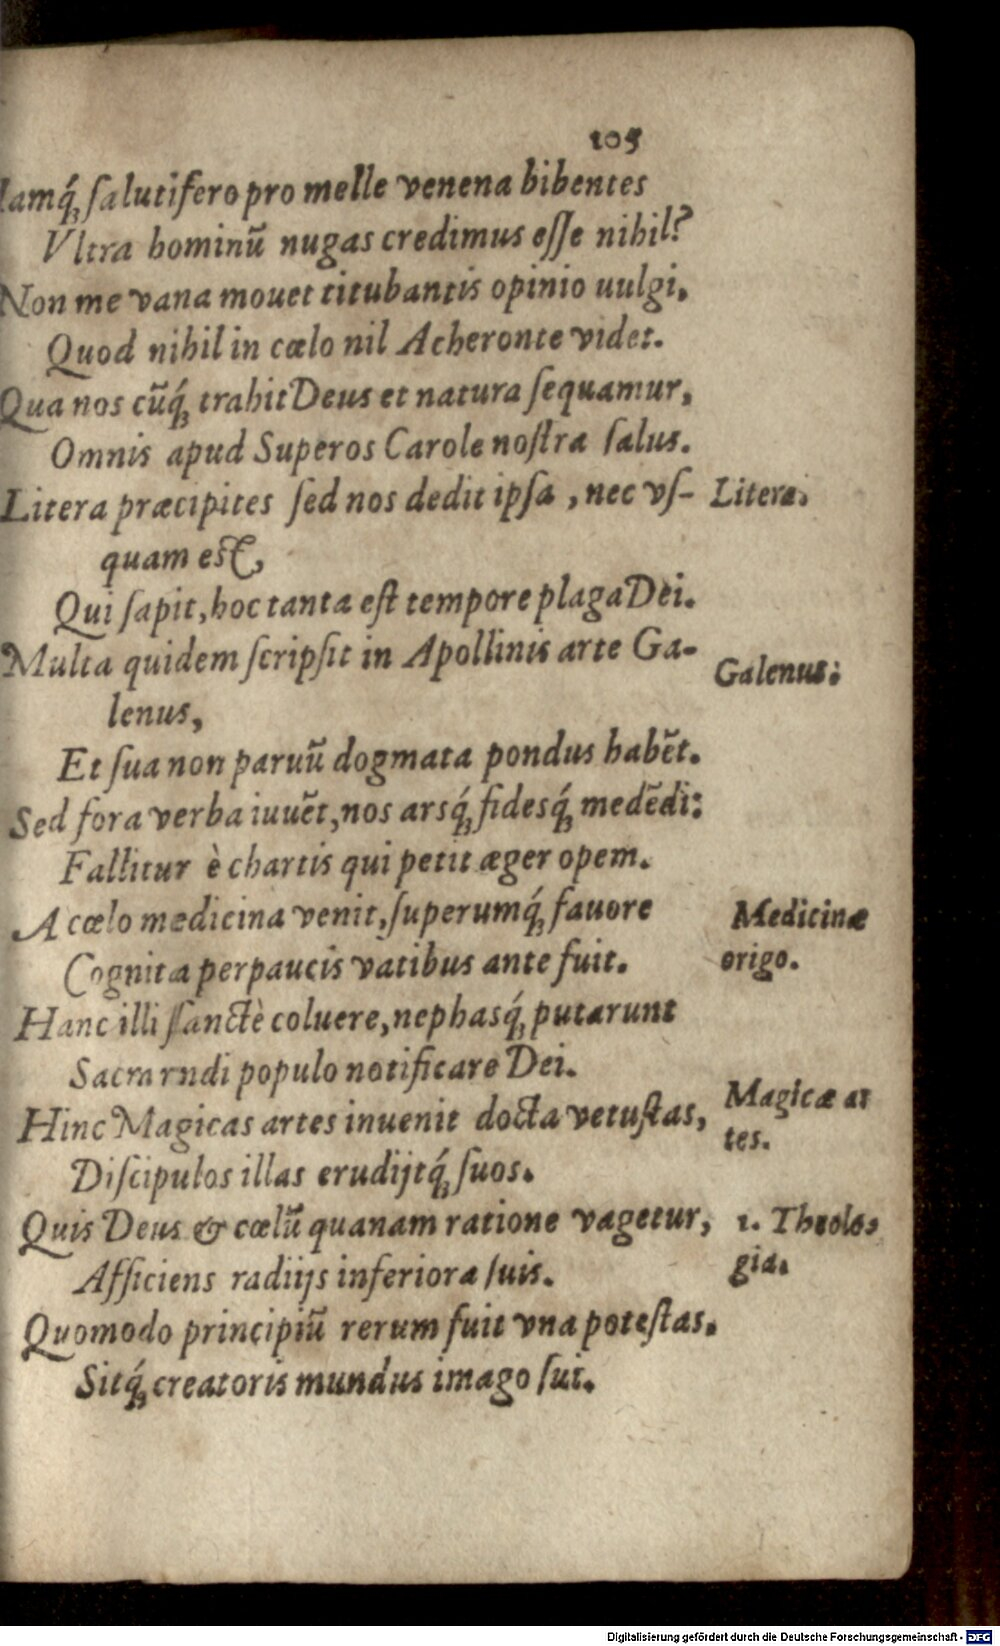 105
Iamq́; ſalutifero pro melle venena bibentes
Vltra hominū nugas credimus eſſe nihil?
Non me vana mouet titubantis opinio uulgi,
Quod nihil in cœlo nil Acheronte videt.
Qua nos cūq́; trahit Deus et natura ſequamur,
Omnis apud Superos Carole noſtra ſalus.
Litera præcipites ſed nos dedit ipſa, nec vſ- Litera.
quam eſt,
Qui ſapit, hoc tanta eſt tempore plaga Dei.
Multa quidem ſcripſit in Apollinis arte Ga- Galenus:
lenus,
Et ſua non paruū dogmata pondus habēt.
Sed fora verba iuuēt, nos arsq́; fidesq́; medēdi:
Fallitur è chartis qui petit æger opem.
A cœlo medicina venit, ſuperumq́; fauore Medicinæ
Cognita perpaucis vatibus ante fuit. origo.
Hanc illi ſanctè coluere, nephasq́; putarunt
Sacra rudi populo notificare Dei.
Hinc Magicas artes inuenit docta vetuſtas, Magicæ ar
Diſcipulos illas erudijtq́; ſuos. tes.
Quis Deus & cœlū quanam ratione vagetur, 1. Theolo-
Afficiens radiijs inferiora ſuis. gia.
Quomodo principiū rerum fuit vna poteſtas.
Sitq́; creatoris mundus imago ſui.
Digitalisierung gefördert durch die Deutsche Forschungsgemeinschaft - DFG